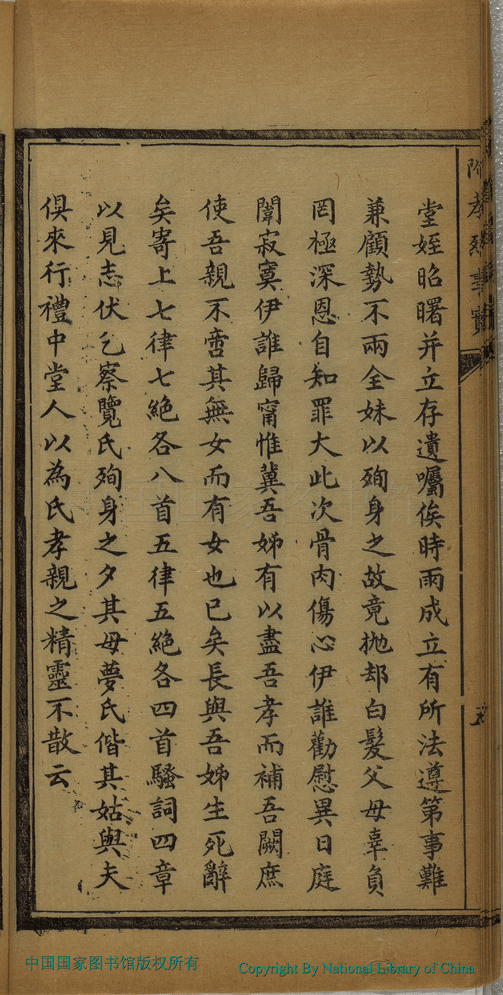 附孝烈事實
堂姪昭曙并立存遺囑俟時雨成立有所法遵第事難
兼顧勢不兩全妹以殉身之故竟拋却白髮父母辜負
罔極深恩自知罪大此次骨肉傷心伊誰勸慰異日庭
闈寂寞伊誰歸甯惟冀吾姊有以盡吾孝而補吾闕庶
使吾親不啻其無女而有女也已矣長與吾姊生死辭
矣寄上七律七絕各八首五律五絕各四首騷詞四章
以見志伏乞察覽氏殉身之夕其母夢氏偕其姑與夫
俱來行禮中堂人以為氏孝親之精靈不散云
五
中国国家图书馆版权所有
Copyright By National Library of China